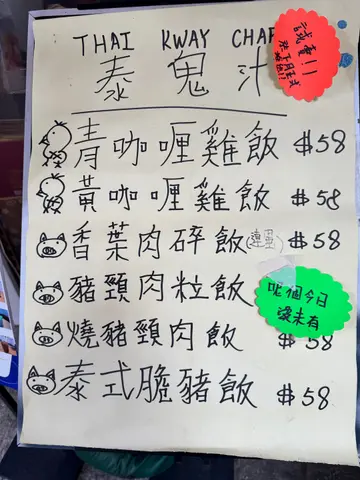 THAI KWAY CHAP
泰鬼汁
試賣!!
青咖喱雞飯 $58
黃咖喱雞飯 $58
香葉肉碎飯(連蛋) $58
豬頸肉粒飯
呢個今日
沒未有
燒豬頸肉飯 $58
泰式脆豬飯 $58